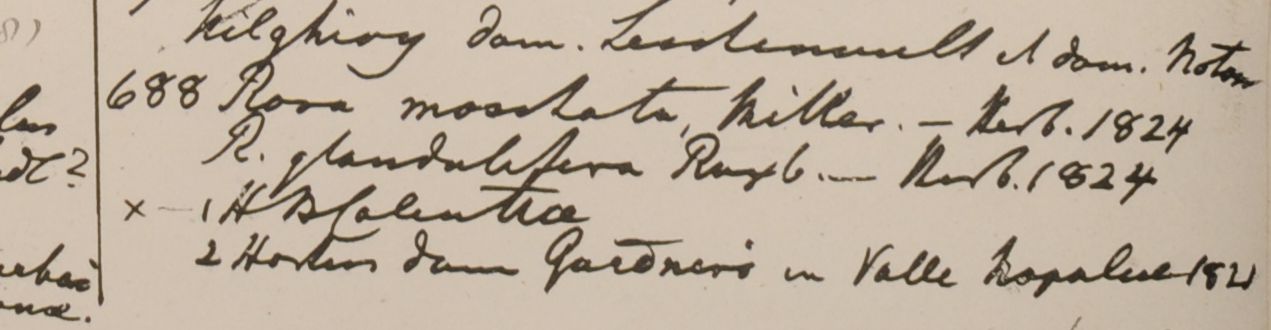 Nilghiry dom. Leschenault et dom. Noton
688 Rosa moschata, Miller. — Herb. 1824
R. glandulifera Roxb. — Herb. 1824
× — 1 H B Calcuttae
2 Hortus dom Gardneri in Valle Napaliae 1821